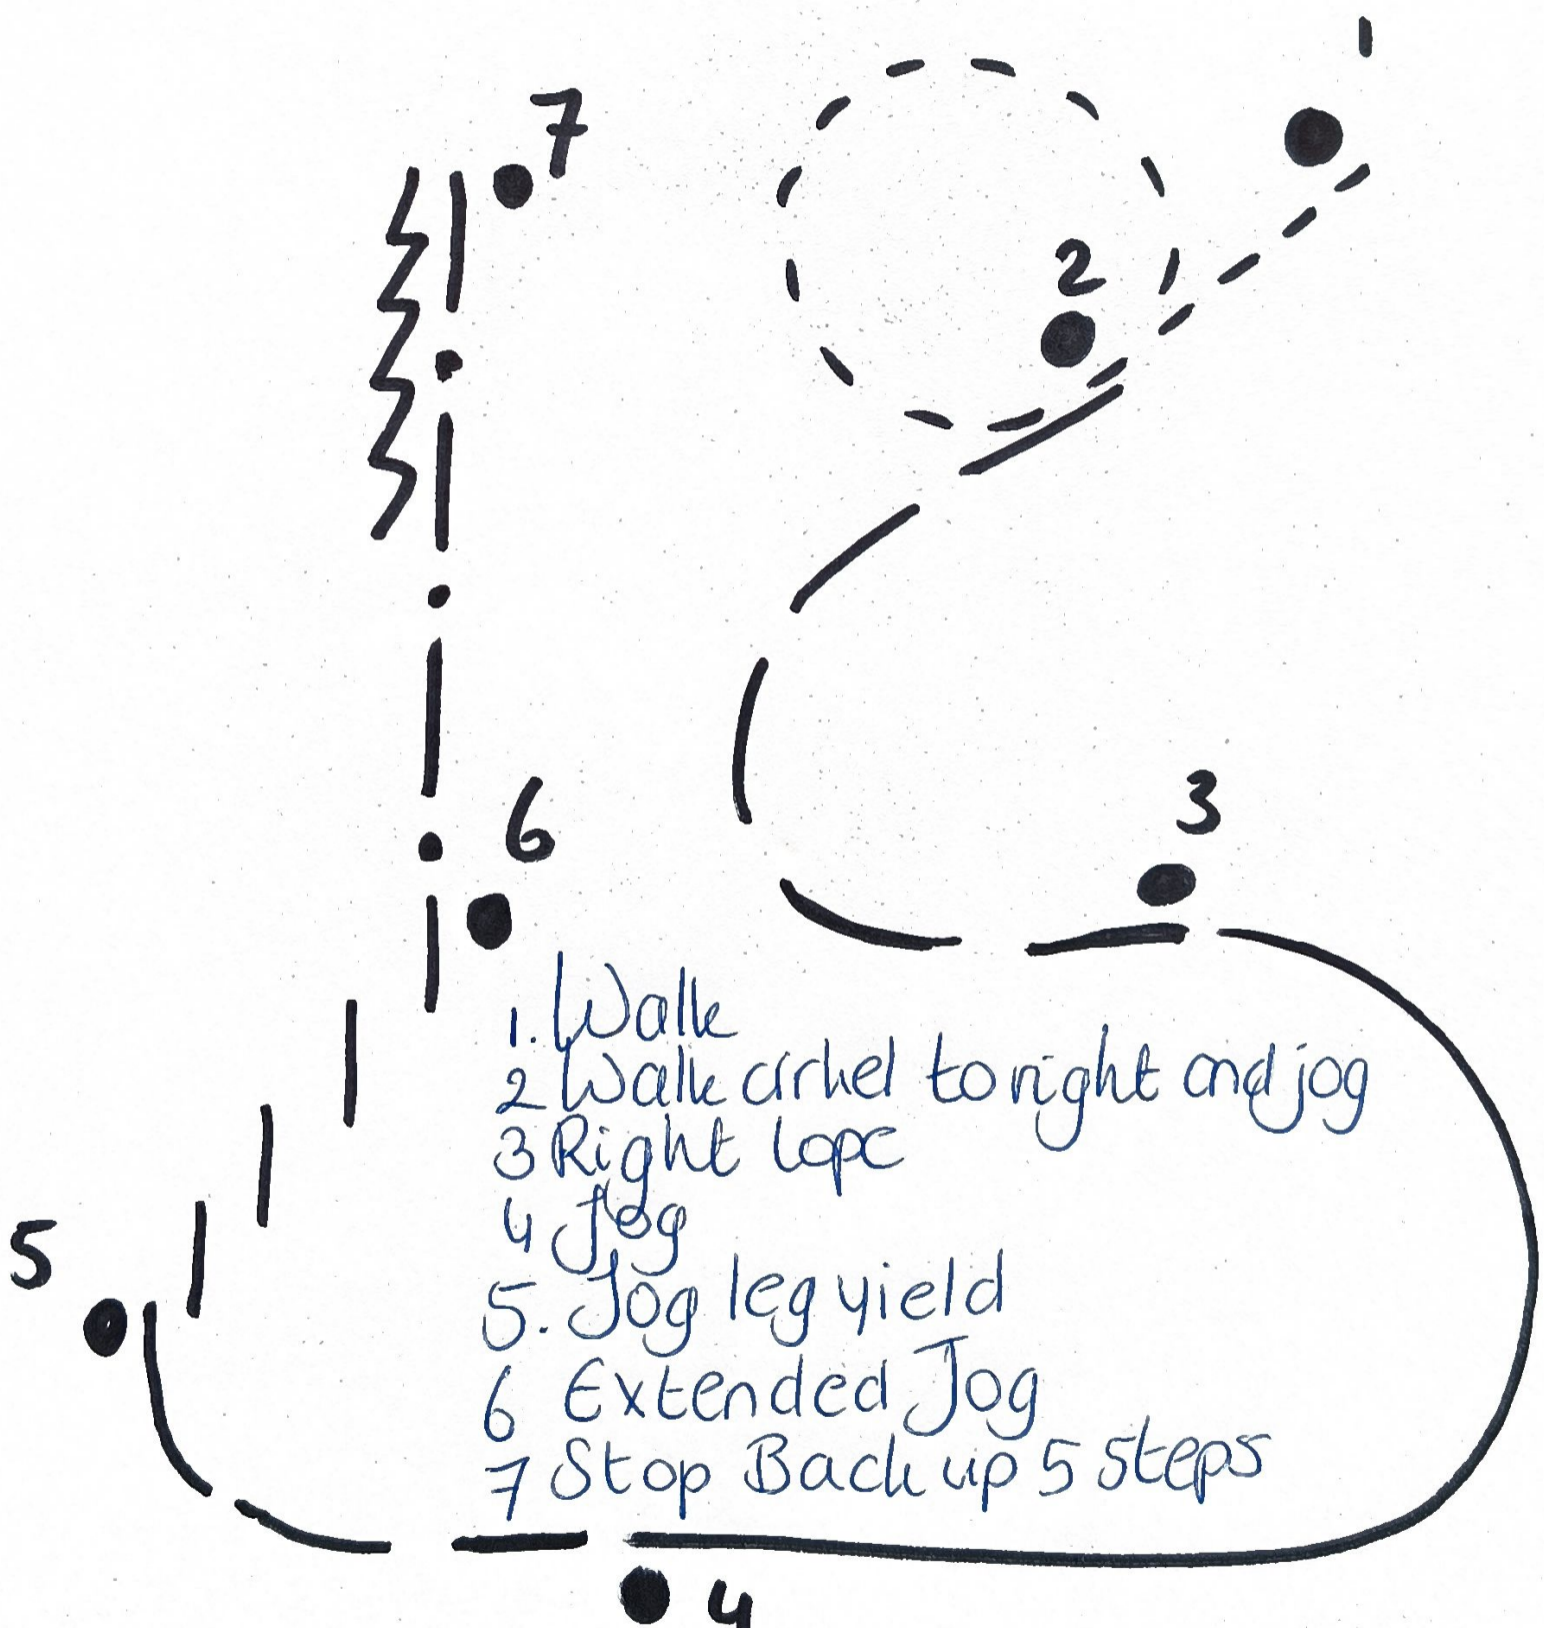 1
7
2
3
6
1. Walk
2 Walk cirkel to right and jog
3 Right lope
4 Jog
5. Jog leg yield
6 Extended Jog
7 Stop Back up 5 steps
5
4